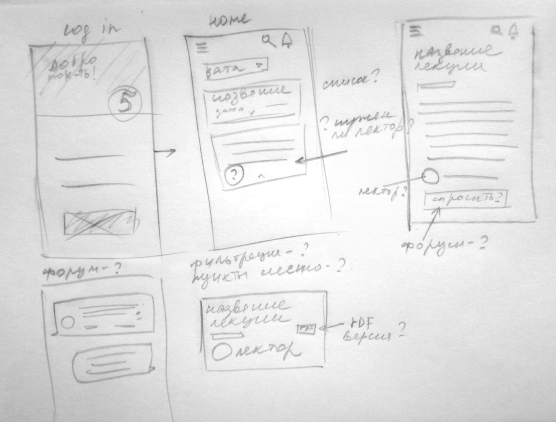 Log in
Добро
пож-ть!
5
Home
дата
название
дата
?
список?
? нужен
ли лектор?
название
лекции
лектор?
спросить?
форум-?
форум-?
фильтрация-?
пункты место-?
название
лекции
PDF
лектор
PDF
версия?